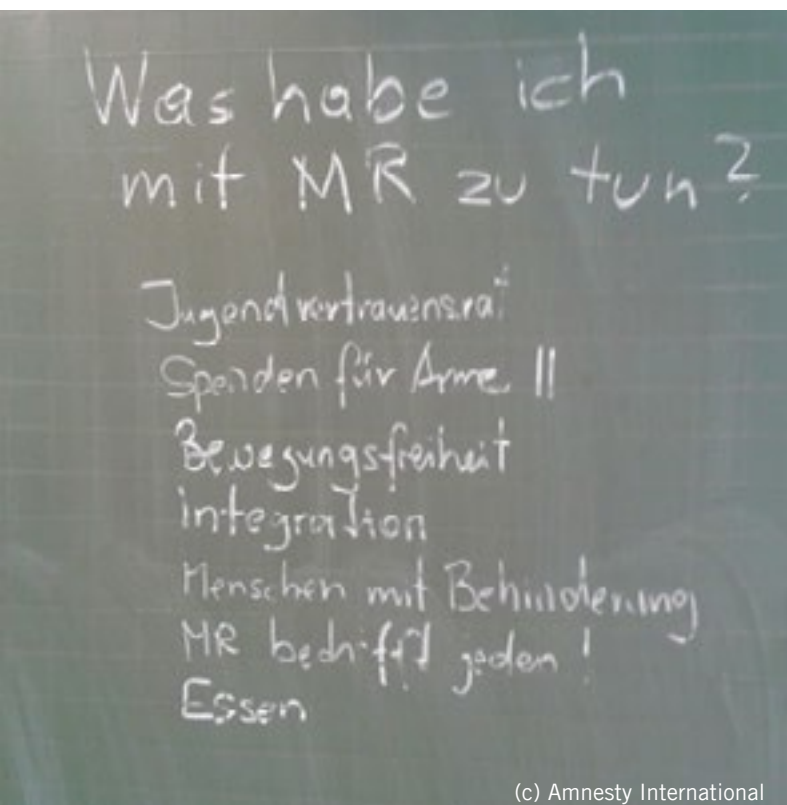 Was habe ich
mit MR zu tun?
Jugendvertrauensrat
Spenden für Arme ||
Bewegungsfreiheit
integration
Menschen mit Behinderung
MR betrifft jeden!
Essen
(c) Amnesty International